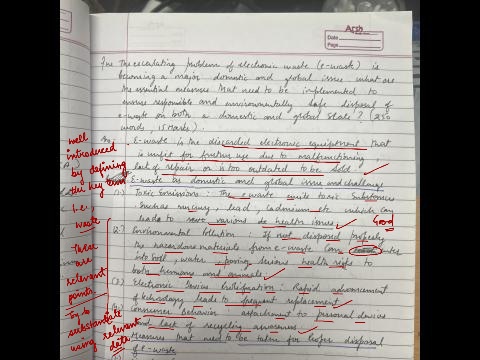 Arsh
Date
Page
The escalating problem of electronic waste (e-waste) is
becoming a major domestic and global issue what are
the essential measures that need to be implemented to
ensure responsible and environmentally safe disposal of
e-waste on both a domestic and global scale? (250
words, 15 marks).
E-waste is the discarded electronic equipment that
is unfit for further use due to malfunctioning,
lack of repair or is too outdated to be sold.
E-waste as domestic and global issue and challenge
(1.) Toxic Emissions: The ewaste emits toxic substances
such as mercury, lead, cadmium etc which can
lead to various health issues. Good
(2.) Environmental Pollution If not disposed properly
the hazardous materials from e-waste can enter
into soil, water, posing serious health risk to
both humans and animals.
(3.) Electronic Devices Proliferation: Rapid advancement
of technology leads to frequent replacement
Consumer Behavior attachment to personal devices
and lack of recycling awareness.
measures that need to be taken for proper disposal
of e-waste
well
introduced
by defining
the key term
i.e.,
waste
These
are
relevant
points.
Try to
substantiate
using relevant
data